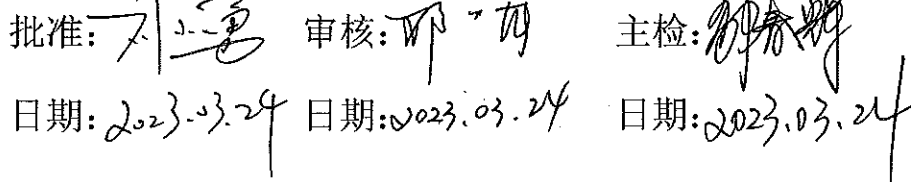 批准: 审核: 主检:
日期:2023.03.24 日期:2023.03.24 日期:2023.03.24